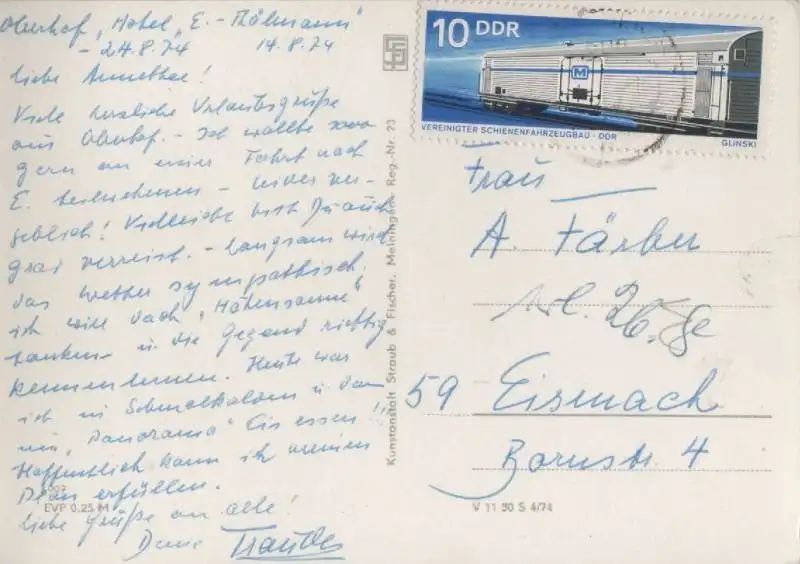 Oberhof, Hotel „E.-Thälmann"
- 24.8.74 14.8.74
Liebe Annethee!
Viele herzliche Urlaubsgrüße
aus Oberhof. - Ich wollte soo
gern an einer Fahrt nach
E. teilnehmen - leider ver-
geblich! Vielleicht bist Du auch
grad verreist. - Langsam wird
das Wetter sympathisch.
ich will doch „Höhensonne"
tanken u. die Gegend richtig
kennenlernen. Heute war
ich in Schmalkalden u. dann
im „Panorama" Eis essen!!
Hoffentlich kann ich meinen
Plan erfüllen.
Liebe Grüße an alle!
Deine Traudel
EVP 0.25 M
Kunstanstalt Straub & Fischer, Meiningen Reg.-Nr. 23
10 DDR
M
VEREINIGTER SCHIENENFAHRZEUGBAU · DDR
GLINSKI
Frau
A. Färber
59 Eisenach
Bornstr. 4
V 11 50 S 4/74